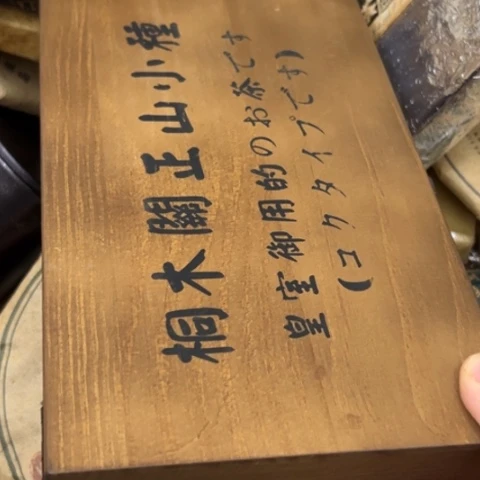 桐木關正山小種
皇室御用的のお茶です
(コクタイプです)